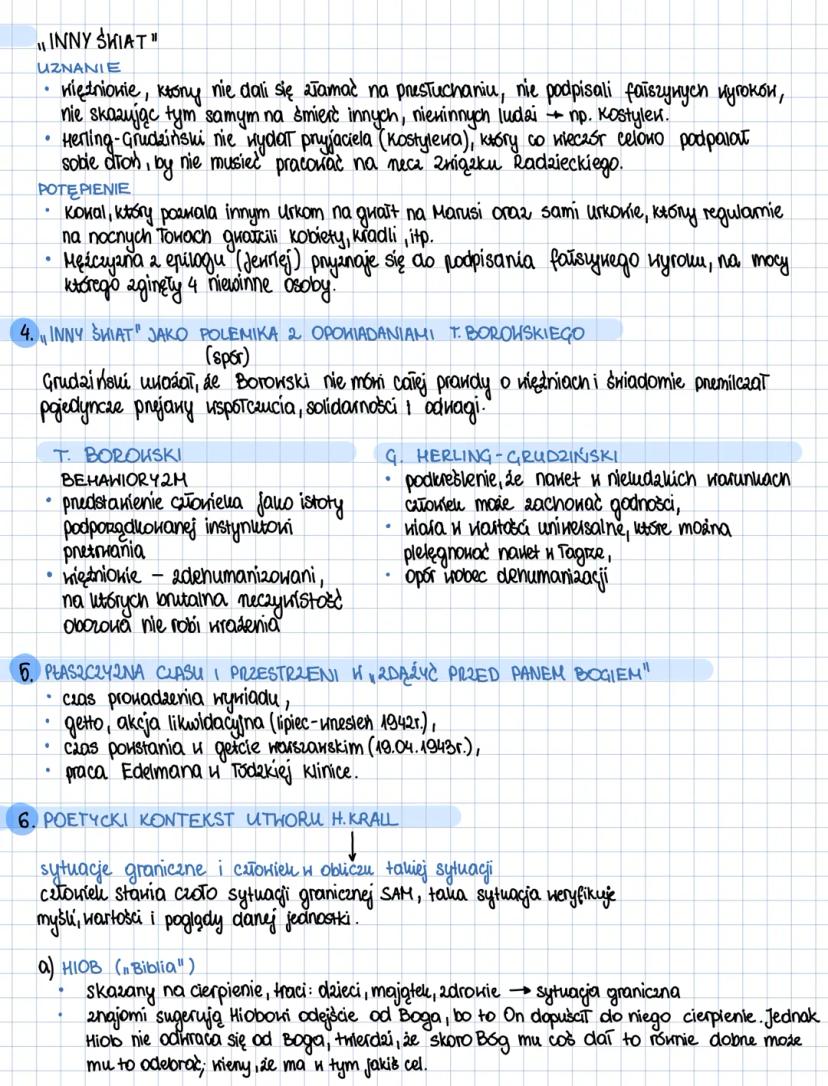 „INNY ŚWIAT"
UZNANIE
• więźniowie, którzy nie dali się złamać na przesłuchaniu, nie podpisali fałszywych wyroków,
nie skazując tym samym na śmierć innych, niewinnych ludzi → np. Kostylew.
• Herling-Grudziński nie wydał przyjaciela (Kostylewa), który co wieczór celowo podpalał
sobie dłoń, by nie musieć pracować na rzecz Związku Radzieckiego.
POTĘPIENIE
• Kowal, który pozwala innym Urkom na gwałt na Marusi oraz sami Urkowie, którzy regularnie
na nocnych łowach gwałcili kobiety, kradli, itp.
• Mężczyzna z epilogu (Jenrlej) przyznaje się do podpisania fałszywego wyroku, na mocy
którego zginęły 4 niewinne osoby.
4. „INNY ŚWIAT" JAKO POLEMIKA Z OPOWIADANIAMI T. BOROWSKIEGO
(spór)
Grudziński uważał, że Borowski nie mówi całej prawdy o więźniach i świadomie przemilczał
pojedyncze przejawy współczucia, solidarności i odwagi.
T. BOROWSKI
BEHAWIORYZM
• przedstawienie człowieka jako istoty
podporządkowanej instynktowi
przetrwania
• więźniowie – zdehumanizowani,
na których brutalna rzeczywistość
obozowa nie robi wrażenia
G. HERLING-GRUDZIŃSKI
• podkreślenie, że nawet w nieludzkich warunkach
człowiek może zachować godności,
• wiara w wartości uniwersalne, które można
pielęgnować nawet w łagrze,
• opór wobec dehumanizacji
5. PŁASZCZYZNA CZASU I PRZESTRZENI W „ZDĄŻYĆ PRZED PANEM BOGIEM"
• czas prowadzenia wywiadu,
• getto, akcja likwidacyjna (lipiec-wrzesień 1942r.),
• czas powstania w getcie warszawskim (19.04.1943r.),
• praca Edelmana w łódzkiej klinice.
6. POETYCKI KONTEKST UTWORU H. KRALL
↓
sytuacje graniczne i człowiek w obliczu takiej sytuacji
człowiek stawia czoło sytuacji granicznej SAM, taka sytuacja weryfikuje
myśli, wartości i poglądy danej jednostki.
a) HIOB („Biblia")
• skazany na cierpienie, traci: dzieci, majątek, zdrowie → sytuacja graniczna
• znajomi sugerują Hiobowi odejście od Boga, bo to On dopuścił do niego cierpienie. Jednak
Hiob nie odwraca się od Boga, twierdzi, że skoro Bóg mu coś dał to równie dobrze może
mu to odebrać; wierzy, że ma w tym jakiś cel.